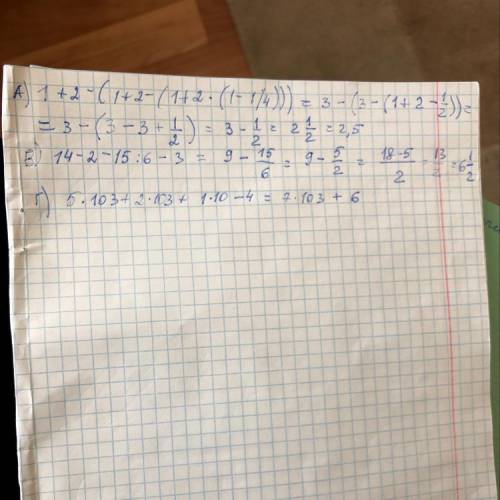 А) 1+2-(1+2-(1+2·(1-1/4))) = 3-(3-(1+2-1/2))=
= 3-(3-3+1/2) = 3-1/2 = 2 1/2 = 2,5
В) 14-2-15:6-3 = 9-15/6 = 9-5/2 = 18-5/2 = 13/2 = 6 1/2
Г) 5·103+2·103+1·10-4 = 7·103+6